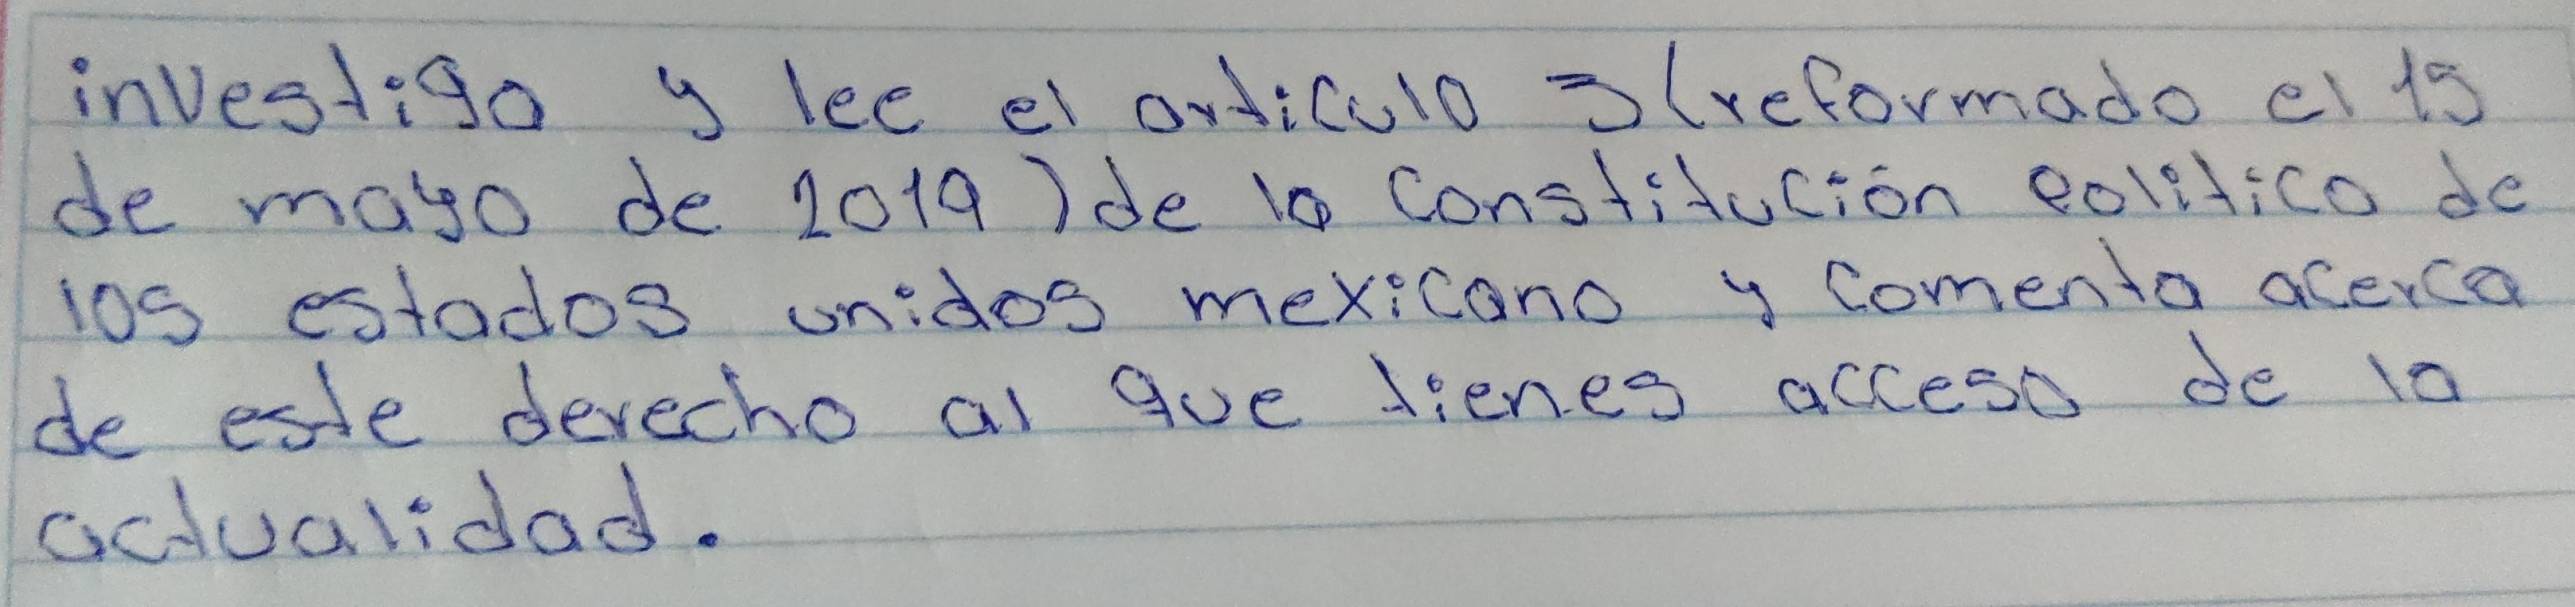 investiga y lee el articulo 3 (reformado el 15
de mayo de 2019) de la Constitución Politica de
los estados unidos mexicano y comenta acerca
de este derecho al que tienes acceso de la
actualidad.